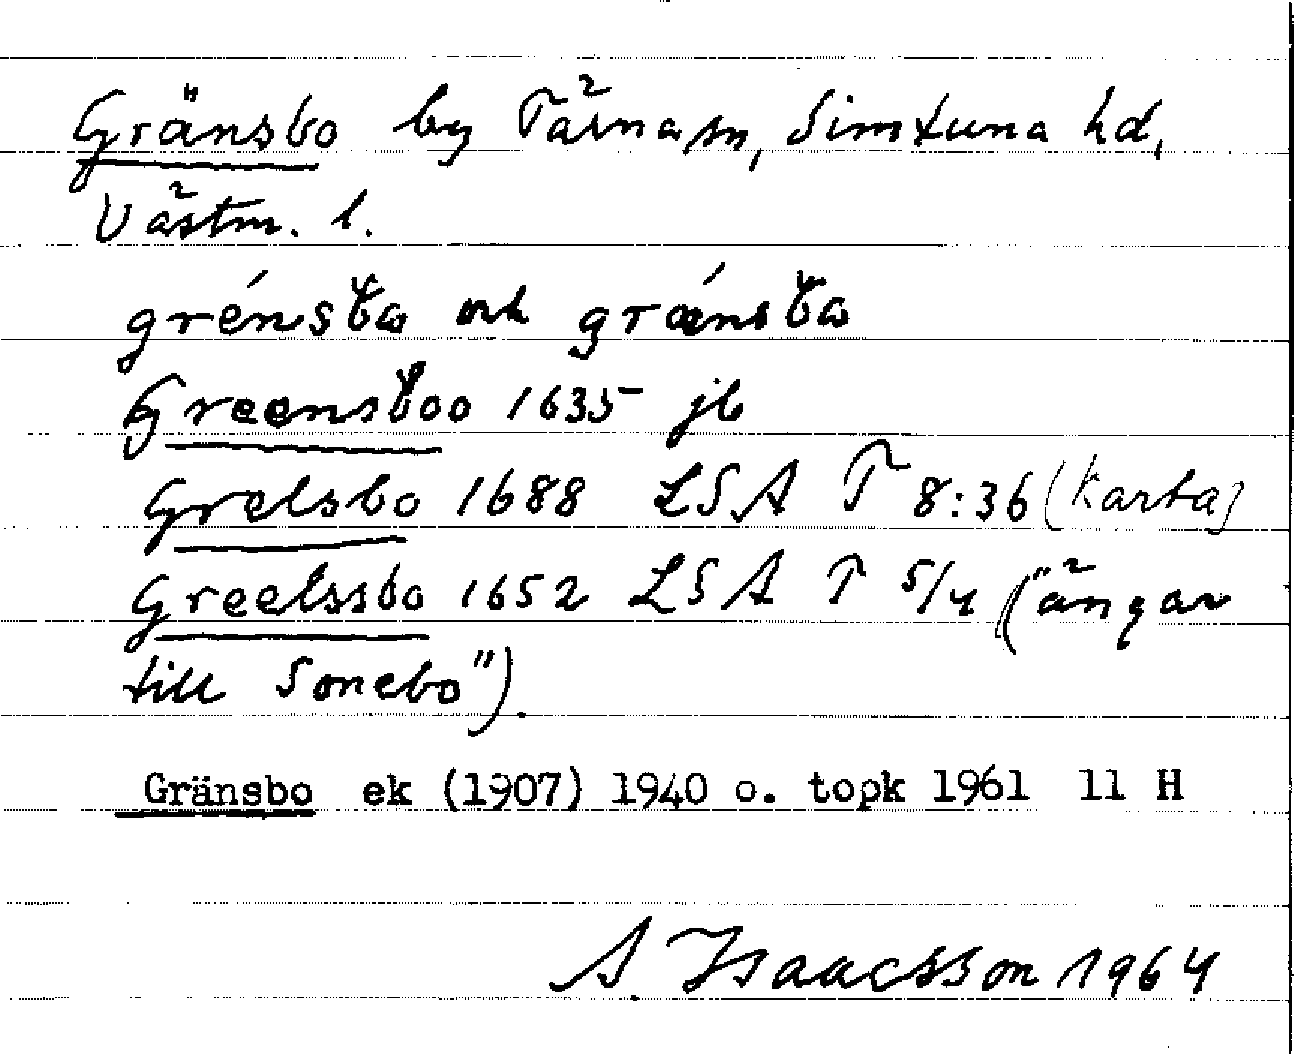 Gränsbo by Tärna sn, Simtuna hd,
Västm. l.
grénsba ok grǽnsba
Greensboo 1635 jb
Grelsbo 1688 LSA T 8:36 (karta)
Greelssbo 1652 LSA T 5/4 ("ängar
till Sonebo").
Gränsbo ek (1907) 1940 o. topk 1961 11 H
A. Isaacsson 1964